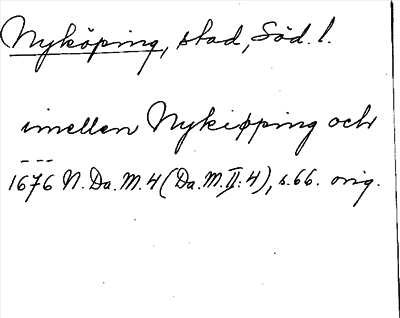 Nyköping, stad, Söd. l.
imellen Nykiøpping och
---
1676 N. Da. M. 4 (Da. M. II: 4), s. 66. orig.